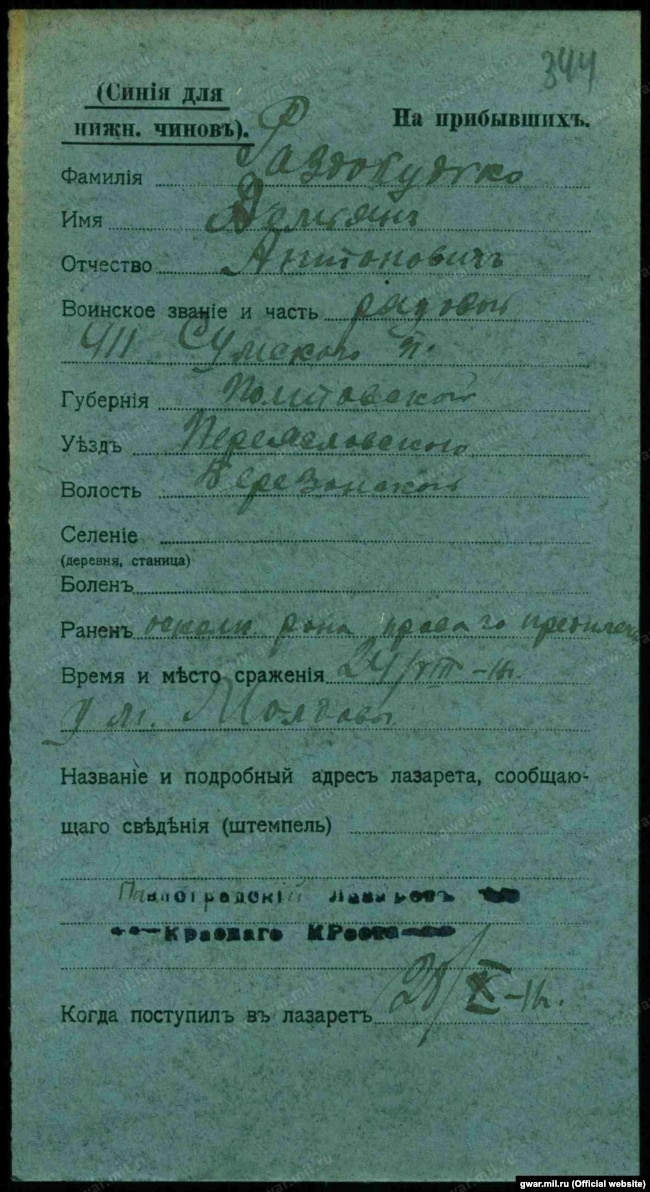 344
(Синія для
нижн. чиновъ).
На прибывшихъ.
Фамилія Раздобудько
Имя Демьянъ
Отчество Антоновичъ
Воинское званіе и часть рядовой
411 Сумского п.
Губернія Полтавской
Уѣздъ Переяславского
Волость Березанской
Селеніе
(деревня, станица)
Боленъ
Раненъ осколк. рана праваго предплечья
Время и мѣсто сраженія 24/VIII-16.
у м. Молдовы
Названіе и подробный адресъ лазарета, сообщаю-
щаго свѣдѣнія (штемпель)
Павлоградскій Лазаретъ
Краснаго КРеста
Когда поступилъ въ лазаретъ /X-16.
gwar.mil.ru (Official website)